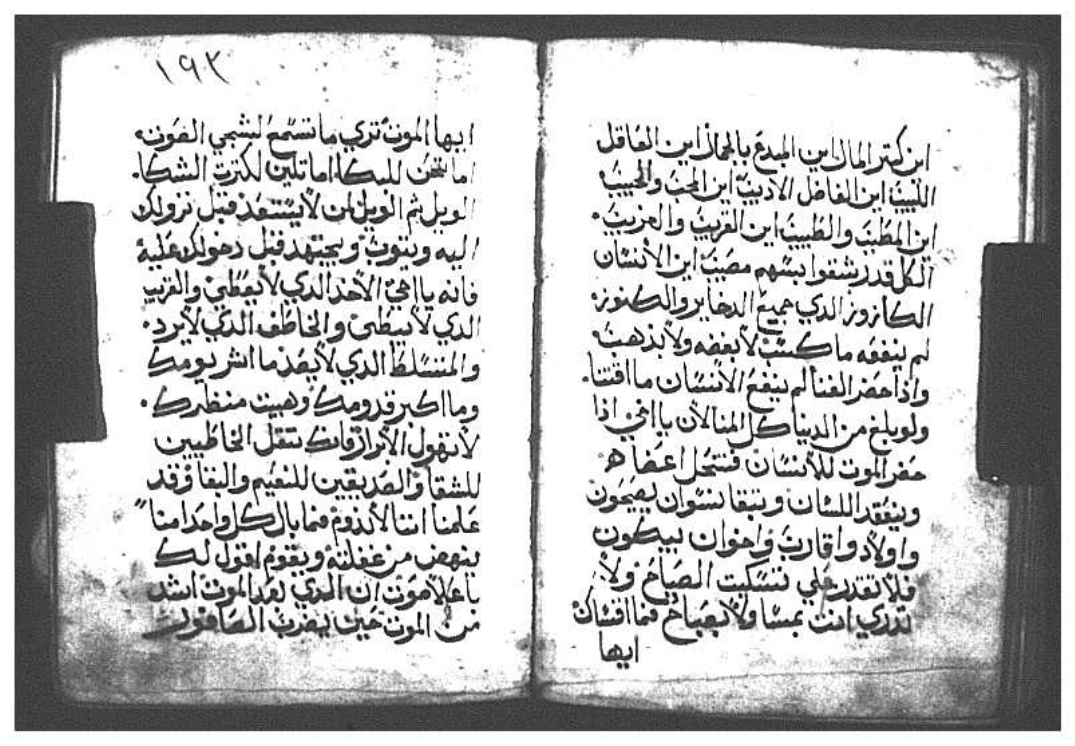 اين كتر المال اين المبدع بالجمال اين العاقل
اللبيب اين الفاضل الاديب اين المحب والحبيب
اين المطبب والطبيب اين القريب والغريب.
الكل قد رشقوا بسهم مصيب اين الانسان
الذي جميع الدخاير والكنوز.
لم ينفعه ما كسب لا بفضه ولا بذهب.
واذا حضر الفنا لم ينفع الانسان ما اقتنا.
ولو بلغ من الدنيا كل المنا لان يا اخي اذا
حضر الموت للانسان فتنحل اعضاه
وينعقد اللسان وتبقا نسوان يصيحون
واولاد واقارب واخوان يبكون
فلا تقدر علي تسكيت الصياح ولا
تدري انت بمسا ولا بصباح فما اقساك
ايها
١٩٣
ايها الموت تري ما تسمع لشجي الصوت.
اما تتحنن للبكا اما تلين لكترت الشكا.
الويل ثم الويل لمن لا يستعد قبل نزولك
اليه ويتوب ويجتهد قبل دخولك عليه
فانه يا اخي الاخد الدي لا يعطي والقريب
الدي لا يبطي والخاطف الدي لا يرد.
والمتسلط الدي لا يعد ما اشر يومك
وما اكبر قدومك وهيبت منظرك.
لا تهول الابرار فانك تنقل الخاطيين
للشقا والصديقين للنعيم والبقا وقد
علمنا اننا لا ندوم فما بال كل واحد امنا
ينهض من غفلته ويقوم اقول لك
يا غلام موت ان الدي بعد الموت اشد
من الموت حين يضرب الصافور